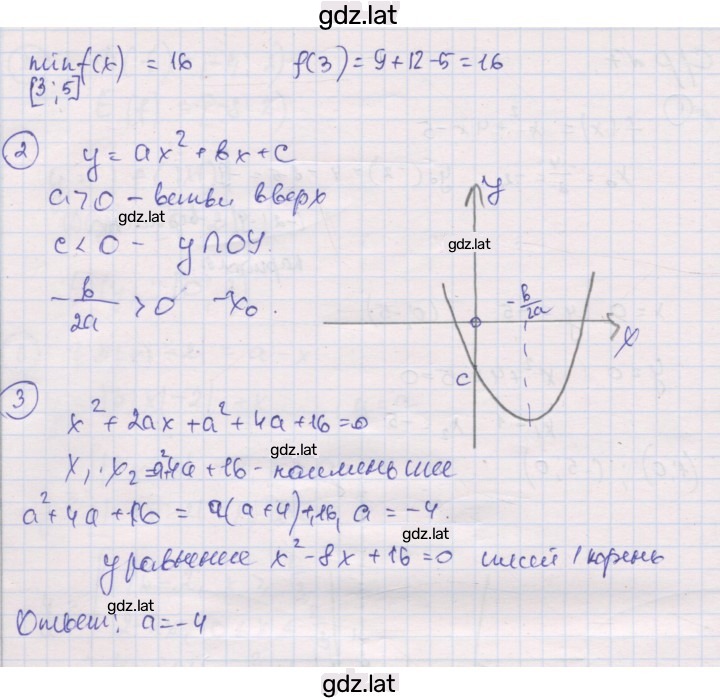 gdz.lat
min f(x) = 16 f(3) = 9+12-5=16
[3;5]
② y = ax²+вx+c
a>0 - ветви вверх
gdz.lat
c<0 - y∩OY.
-в/2a > 0 -x₀.
y
gdz.lat
-в/2a
x
c
③
x²+2ax+a²+4a+16=0
gdz.lat
x₁·x₂=a²+4a+16 - наименьшее
a²+4a+16 = a(a+4)+16, a=-4.
gdz.lat
gdz.lat
уравнение x²-8x+16=0 имеет 1 корень
gdz.lat
Ответ: a=-4
gdz.lat
gdz.lat